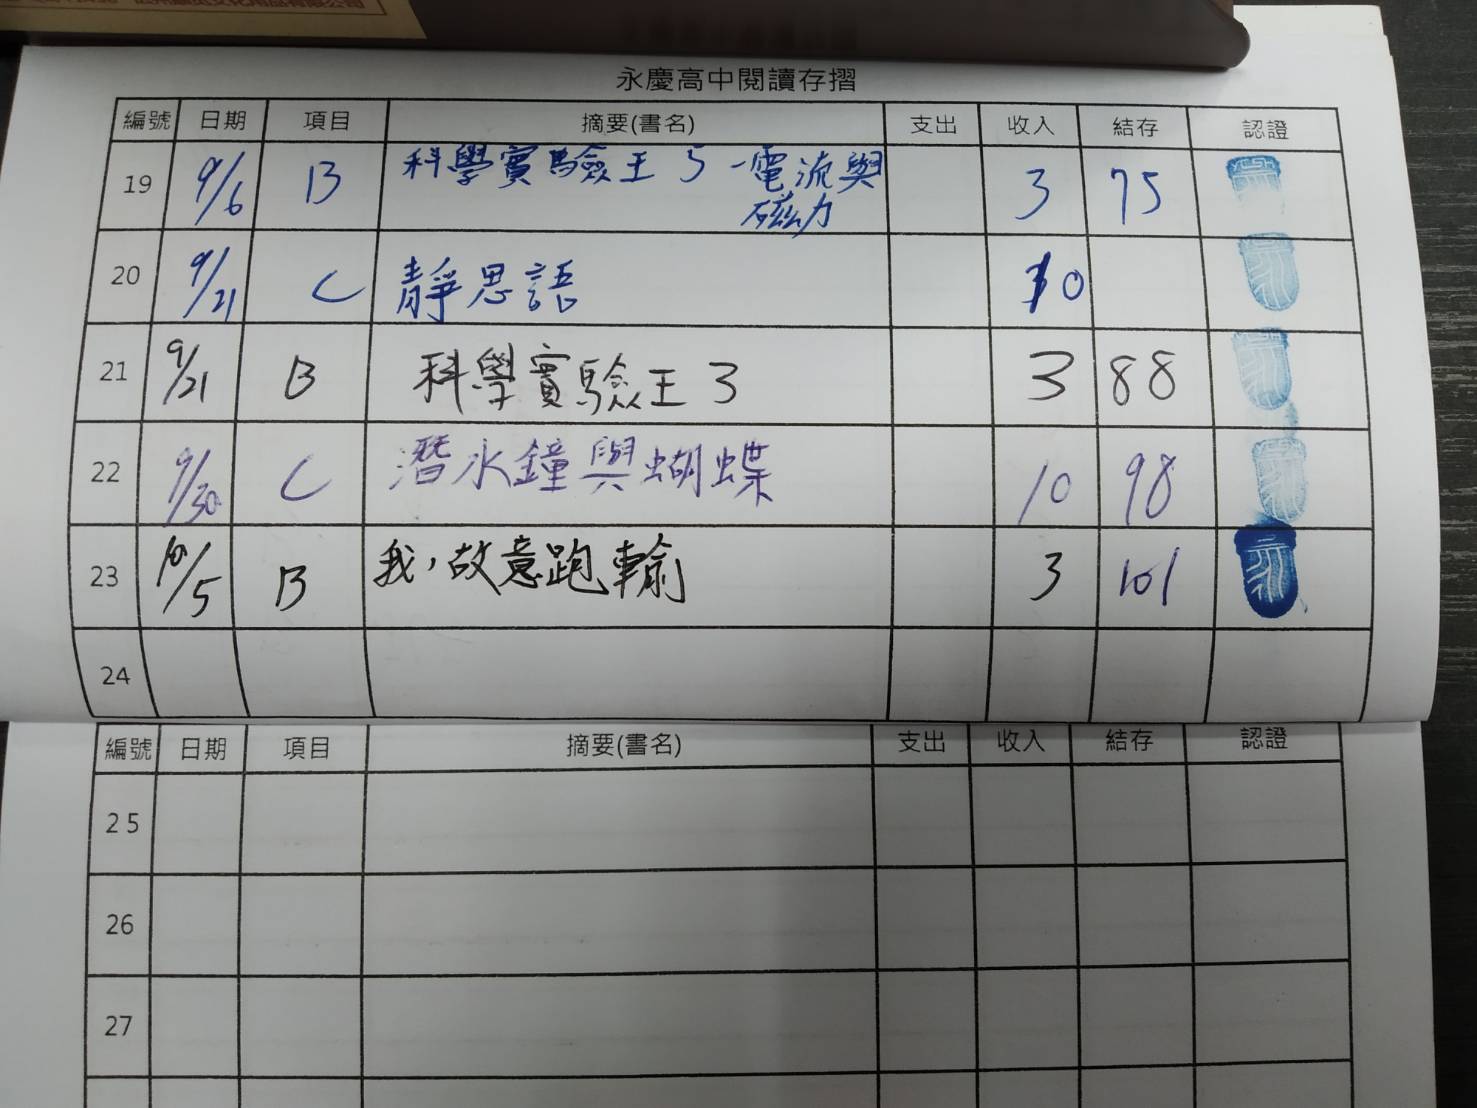 永慶高中閱讀存摺
編號 日期 項目 摘要(書名) 支出 收入 結存 認證
19 9/6 B 科學實驗王 5 -電流與 3 75
磁力
20 9/21 C 靜思語 10
21 9/21 B 科學實驗王 3 3 88
22 9/30 C 潛水鐘與蝴蝶 10 98
23 10/5 B 我,故意跑輸 3 101
24
編號 日期 項目 摘要(書名) 支出 收入 結存 認證
25
26
27